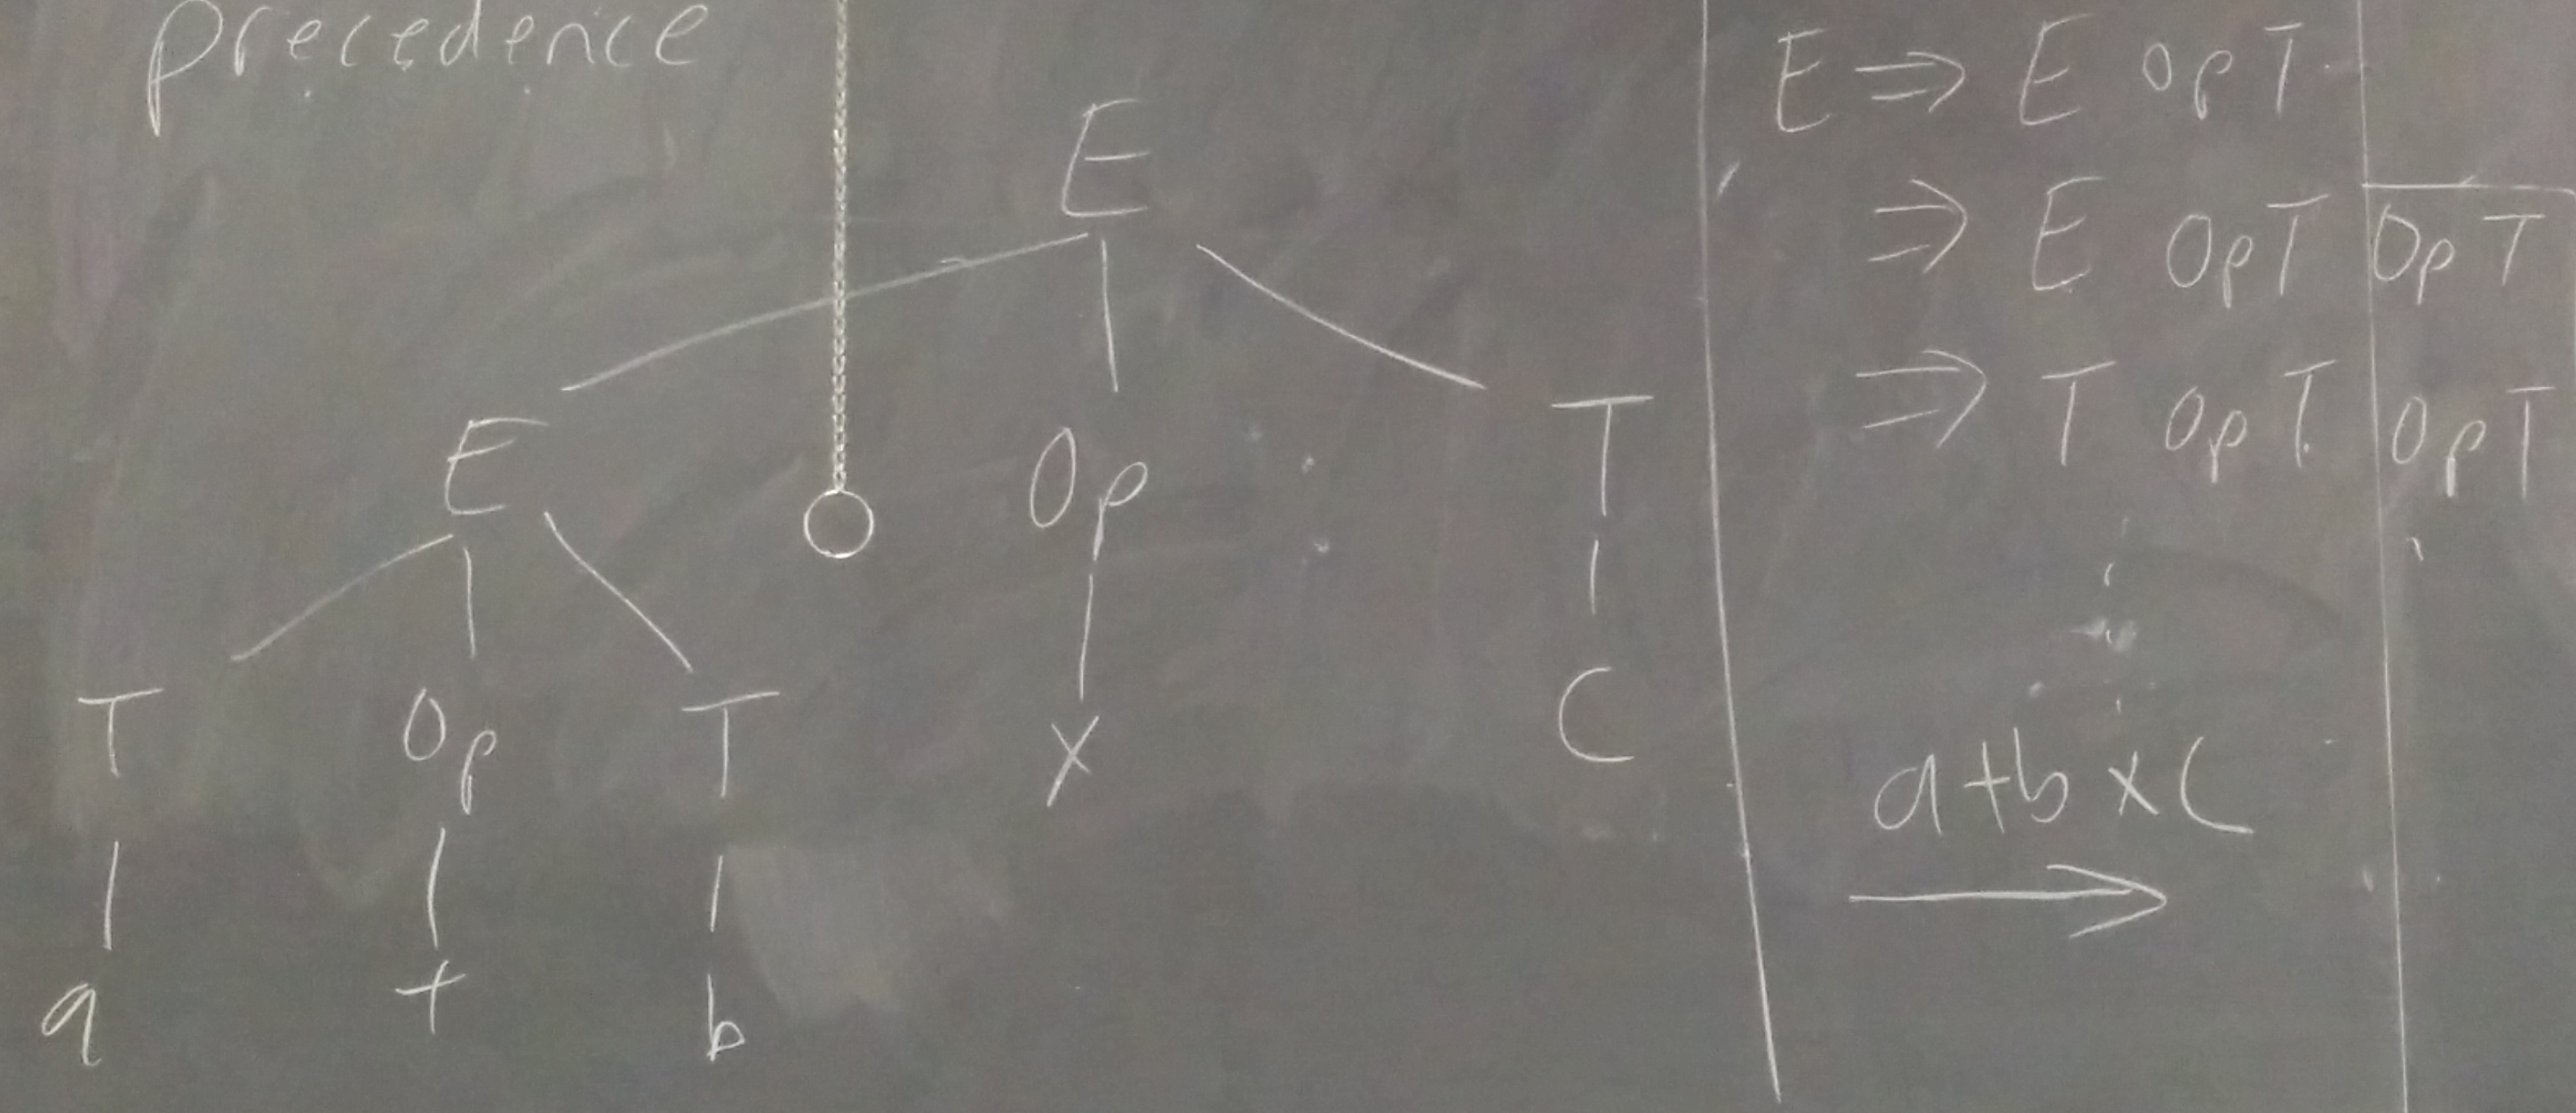 precedence
E
E Op T
T Op T X C
a + b
E ⇒ E Op T
⇒ E Op T Op T
⇒ T Op T Op T
a+b×C